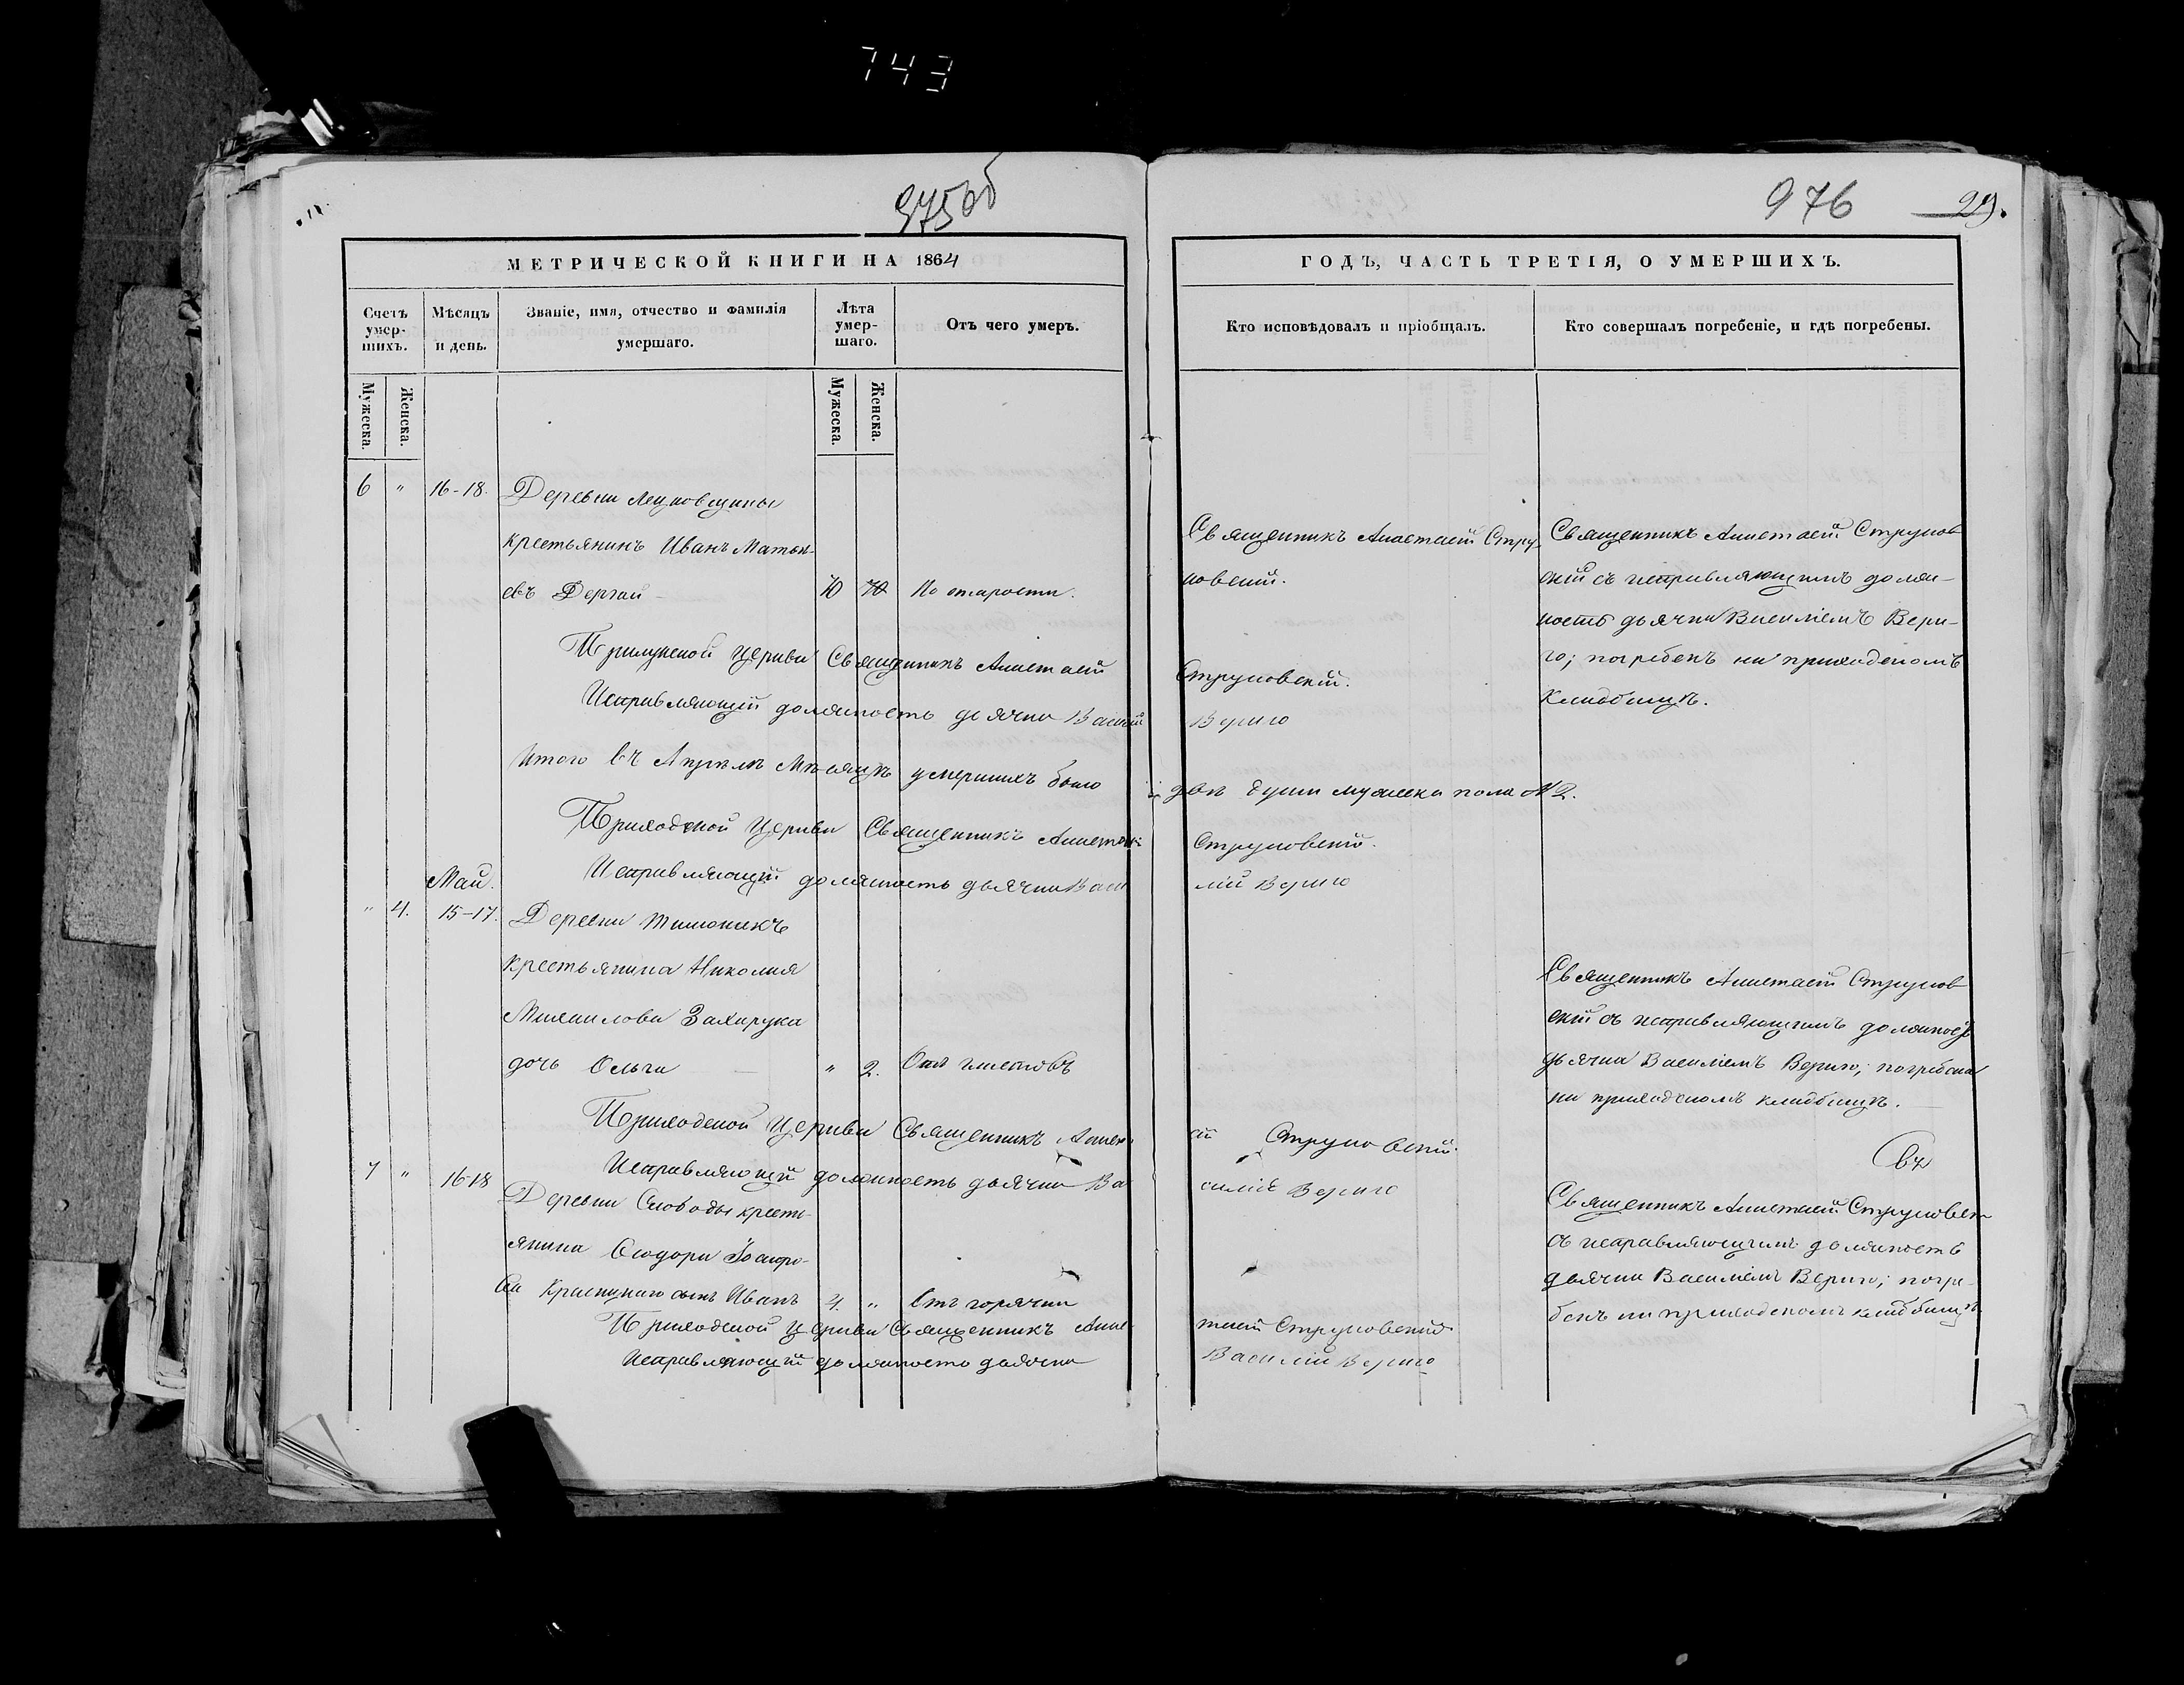 743
975об
976
29.
МЕТРИЧЕСКОЙ КНИГИ НА 1864
ГОДЪ, ЧАСТЬ ТРЕТІЯ, О УМЕРШИХЪ.
Счетъ умер-шихъ.
Мѣсяцъ и день.
Званіе, имя, отчество и фамилія умершаго.
Лѣта умер-шаго.
Отъ чего умеръ.
Кто исповѣдовалъ и пріобщалъ.
Кто совершалъ погребеніе, и гдѣ погребены.
Мужеска.
Женска.
Мужеска.
Женска.
6 " 16-18. Деревни
крестьянинъ Иванъ Матѳе-
евъ Дергай 70 70 По старости.
Священникъ Анастасій Стру-
новскій.
Священникъ Анастасій Струнов
скій съ исправляющимъ долж-
ность дьячка Василіемъ Вери-
го; погребенъ на приходскомъ
кладбищѣ.
Прилукской Церкви Священникъ Анастасій Струновскій.
Исправляющій должность дьячка Василій Вериго
Итого въ Апрѣлѣ Мѣсяцѣ умершихъ было двѣ души мужеска пола № 2.
Приходской Церкви Священникъ Анастасій Струновскій.
Исправляющій должность дьячка Василій Вериго
Май.
" 4. 15-17. Деревни
крестьянина Николая
Михаилова Захарука
дочь Ольга " 2. Отъ глистовъ
Священникъ Анастасій Струнов
скій съ исправляющимъ должность
дьячка Василіемъ Вериго; погребена
на приходскомъ кладбищѣ.
Приходской Церкви Священникъ Анастасій Струновскій.
Исправляющій должность дьячка Василій Вериго
7 " 16-18 Деревни Слободы крестъ-
янина Ѳеодора
сынъ Иванъ 4. " Отъ горячки
Священникъ Анастасій Струновскій
съ исправляющимъ должность
дьячка Василіемъ Вериго; погре-
бенъ на приходскомъ кладбищѣ
Приходской Церкви Священникъ Анастасій Струновскій
Исправляющій должность дьячка Василій Вериго